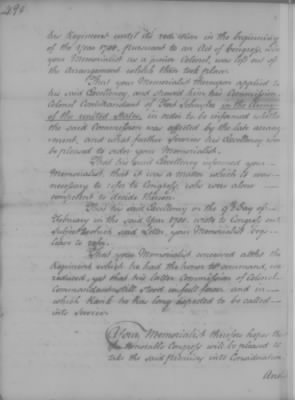 his Regiment until its reduction in the beginning
of the Year 1781, pursuant to an Act of Congress. Tho
your Memorialist as a junior Colonel, was left out of
the Arrangement which then took place.
That your Memorialist thereupon applied to
his said Excellency, and shewed him his Commission,
Colonel Commandant of Fort Schuyler in the Army
of the united States, in order to be informed whether
the said Commission was affected by the late arrange
ment, and what further Services his Excellency would
be pleased to order your Memorialist.
That his said Excellency informed your
Memorialist, that it was a matter which it was
necessary to refer to Congress, who were alone
competent to decide thereon.
That his said Excellency on the Day of
February in the said Year 1781. wrote to Congress on
Subject which said Letter, your Memorialist begs
leave to refer.
That your Memorialist conceives altho the
Regiment which he had the honor to command, was
reduced, yet that his latter Commission of Colonel
Commandant still stood in full force and in
which Rank he has long expected to be called
into Service.
Your Memorialist therefore hopes that
the Honorable Congress will be pleased to
take the said premises into Consideration
And